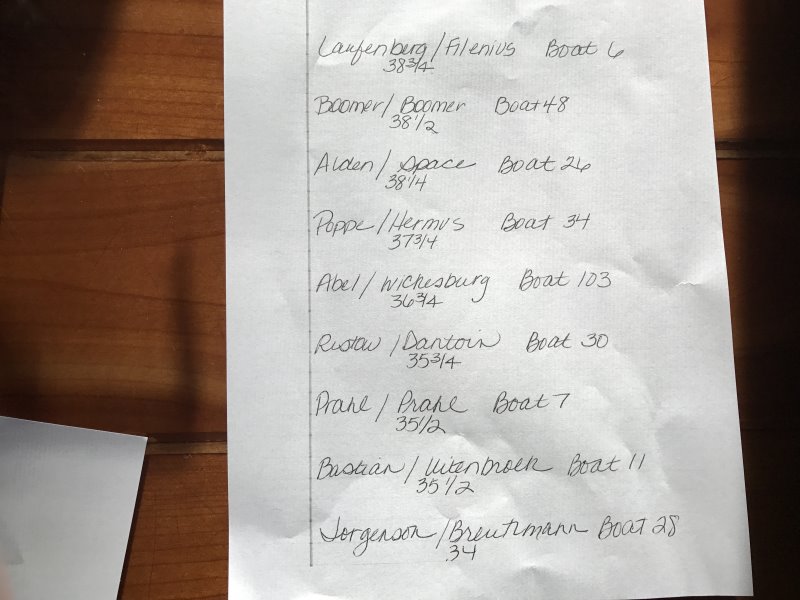 Laufenberg/Filenius Boat 6
38 3/4
Boomer/Boomer Boat 48
38 1/2
Alden/Space Boat 26
38 1/4
Poppe/Hermus Boat 34
37 3/4
Abel/Wichesburg Boat 103
36 3/4
Rustow/Dantoin Boat 30
35 3/4
Prahl/Prahl Boat 7
35 1/2
Bastian/Uitenbroek Boat 11
35 1/2
Jorgenson/Breutzmann Boat 28
34